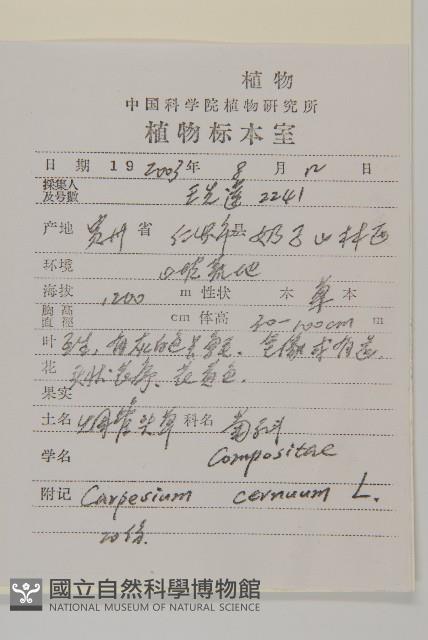 植物
中国科学院植物研究所
植物标本室
日 期 19 2003 年 8 月 12 日
採集人
及号數 2241
产地 贵州 省 仁怀市 县 奶子山林区
环境 山坡荒地
海拔 1200 m 性状 木 草 本
胸高
直徑 cm 体高 30-100cm m
叶 互生,
花 头状花序, 花黄色.
果实
土名 烟管头草 科名 菊科
学名 Compositae
附记 Carpesium cernuum L.
20份.
國立自然科學博物館
NATIONAL MUSEUM OF NATURAL SCIENCE